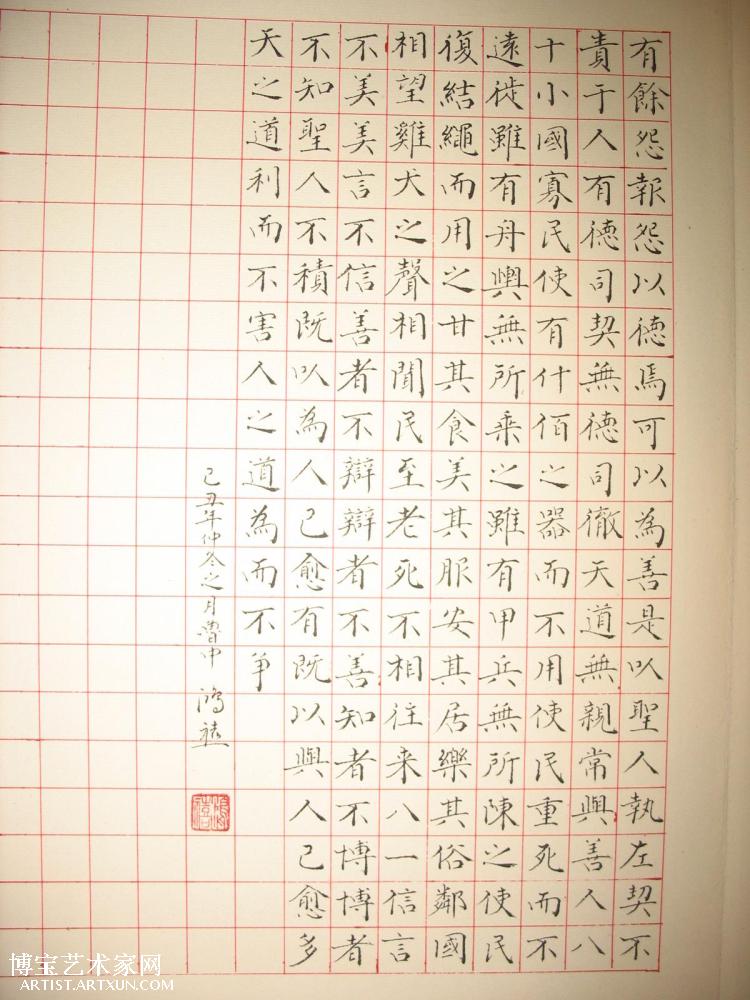 有餘怨報怨以德焉可以為善是以聖人執左契不
責于人有德司契無德司徹天道無親常與善人八
十小國寡民使有什佰之器而不用使民重死而不
遠徙雖有舟輿無所乗之雖有甲兵無所陳之使民
復結繩而用之甘其食美其服安其居樂其俗鄰國
相望雞犬之聲相聞民至老死不相往来八一信言
不美美言不信善者不辯辯者不善知者不博博者
不知聖人不積既以為人己愈有既以與人己愈多
天之道利而不害人之道為而不争
己丑年仲冬之月魯中 鴻
博宝艺术家网
ARTIST.ARTXUN.COM